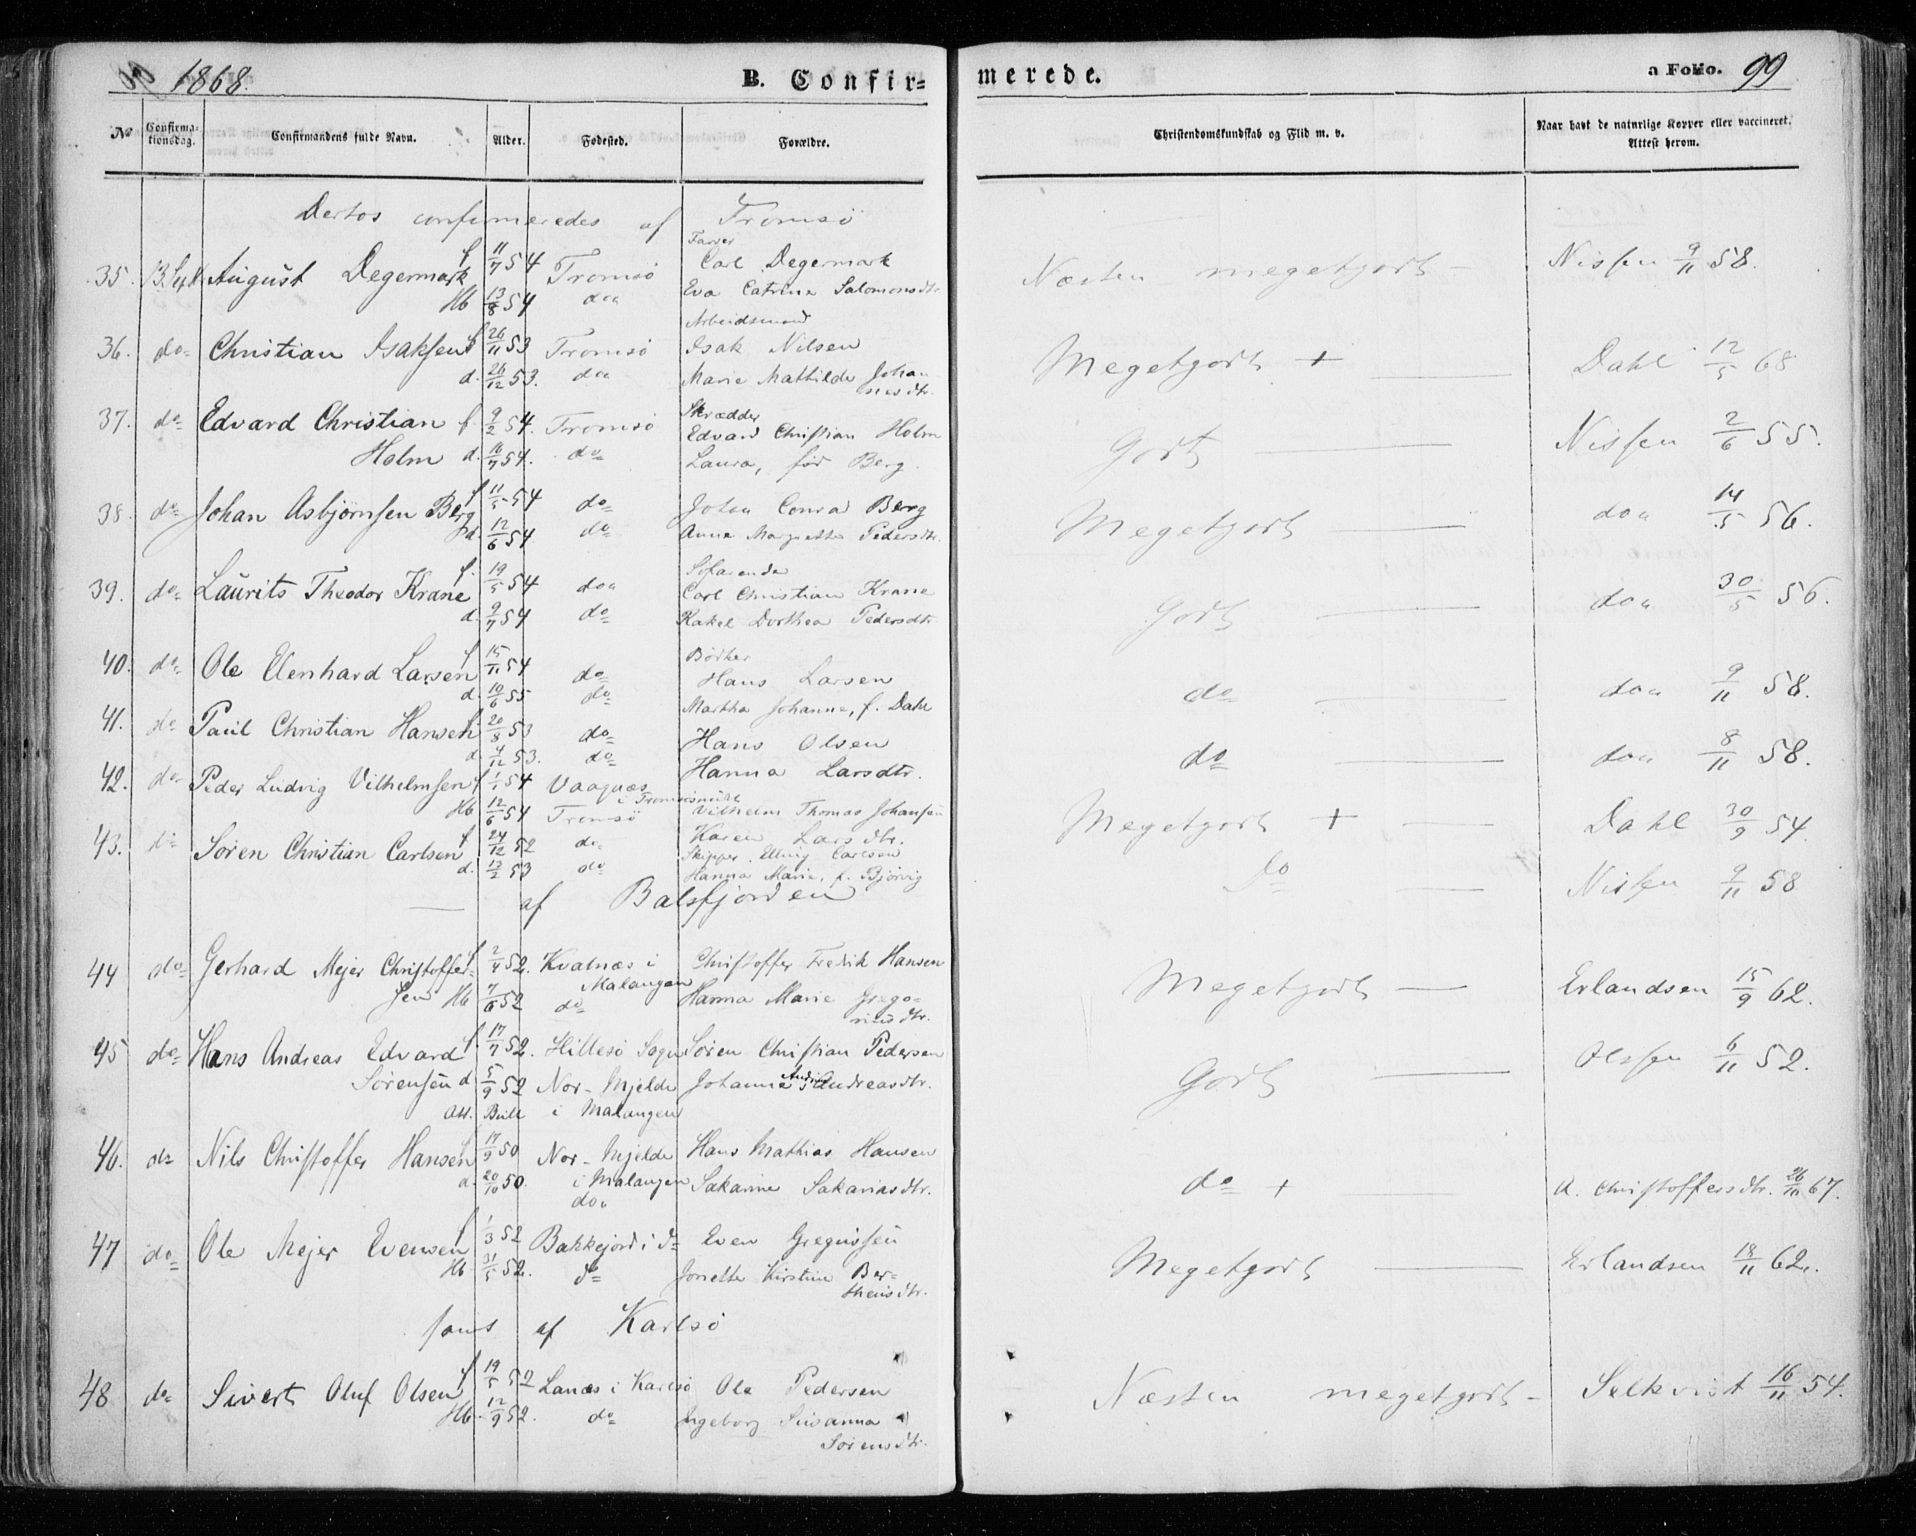 1868. B. Confir=
merede. a Folio. 99
No Confirma-tionsdag. Confirmandens fulde Navn. Alder. Fødested. Forældre. Christendomskundskab og Flid m. v. Naar havt de naturlige Kopper eller vaccineret. Attest herom.
confirmeredes af Tromsö
Farver
35. 13 Sept August Degermark f 11/7 54 Tromsö Carl Degermark Næsten megetgodt — Nissen 9/11 58.
Hb 13/8 54 do Eva Catrine Salomonsdtr
Arbeidsmand
36. do Christian Isaksen f 26/11 53 Tromsö Isak Nilsen Megetgodt + — Dahl 12/5 68
d. 26/12 53. do Marie Mathilde Johan
nesdtr.
Skrædder
37. do Edvard Christian f. 9/2 54. Tromsö Edvard Christian Holm Godt — Nissen 2/6 55.
Holm d. 16/7 54. do Laura, fød Berg.
38. do Johan Asbjørnsen Berg f 11/5 54 do Johan Conrad Berg Megetgodt — do 14/5 56.
d. 12/6 54 do Anna Margrethe Pedersdtr.
Søfarende
39. do Laurits Theodor Krane f. 19/5 54 do Carl Christian Krane Godt — do 30/5 56.
d. 9/7 54 do Rakel Dorthea Pedersdtr
Bödker
40. do Ole Elenhard Larsen f 15/11 54 do Hans Larsen do — do 9/11 58.
d 10/6 55 do Martha Johanne, f. Dahl
41. do Paul Christian Hansen f. 20/8 53 do Hans Olsen do — do 8/11 58.
d 4/12 53. do Hanna Larsdtr.
42. do Peder Ludvig Vilhelmsen f 1/1 54 Vaagnæs
i Tromsösund Vilhelm Thomas Johansen Megetgodt + — Dahl 30/9 54.
Hb 12/6 54 Tromsö Karen Larsdtr.
43. do Sören Christian Carlsen f 24/12 52 do Skipper Elling Carlsen Do — Nissen 9/11 58
d. 13/2 53 do Hanna Marie, f. Bjørvig
— af Balsfjorden
44 do Gerhard Mejer Christoffer- f 2/4 52. Kvalnæs i Christoffer Fredrik Hansen Megetgodt — Erlandsen 15/9 62.
Malangen
sen Hb 7/6 52 do Hanna Marie Grego-
riusdtr.
45 do Hans Andreas Edvard f. 17/7 52. Hillesö Sogn Sören Christian Pedersen Godt — Olssen 6/11 52.
Sörensen d 5/9 52 Nor-Mjelde Johanna Andreasdtr.
Att. Bull i Malangen
46. do Nils Christoffer Hansen f 17/9 50 Nor-Mjelde Hans Mathias Hansen do + A. Christoffersdtr. 26/11 67.
d. 20/10 50. i Malangen Sakarine Sakariasdtr.
do
47 do Ole Mejer Evensen f 1/3 52 Bakkejord i do Even Gregussen Megetgodt — Erlandsen 18/11 62.
Hb 31/5 52. do Jonetta Kirstine Ber-
theusdtr.
samt af Karlsö
48 do Sivert Oluf Olsen f 19/5 52 Lanæs i Karlsö Ole Pedersen Næsten megetgodt — Selkvist 16/11 54.
Hb. 12/9 52. do Ingeborg Susanna
Sörensdtr.